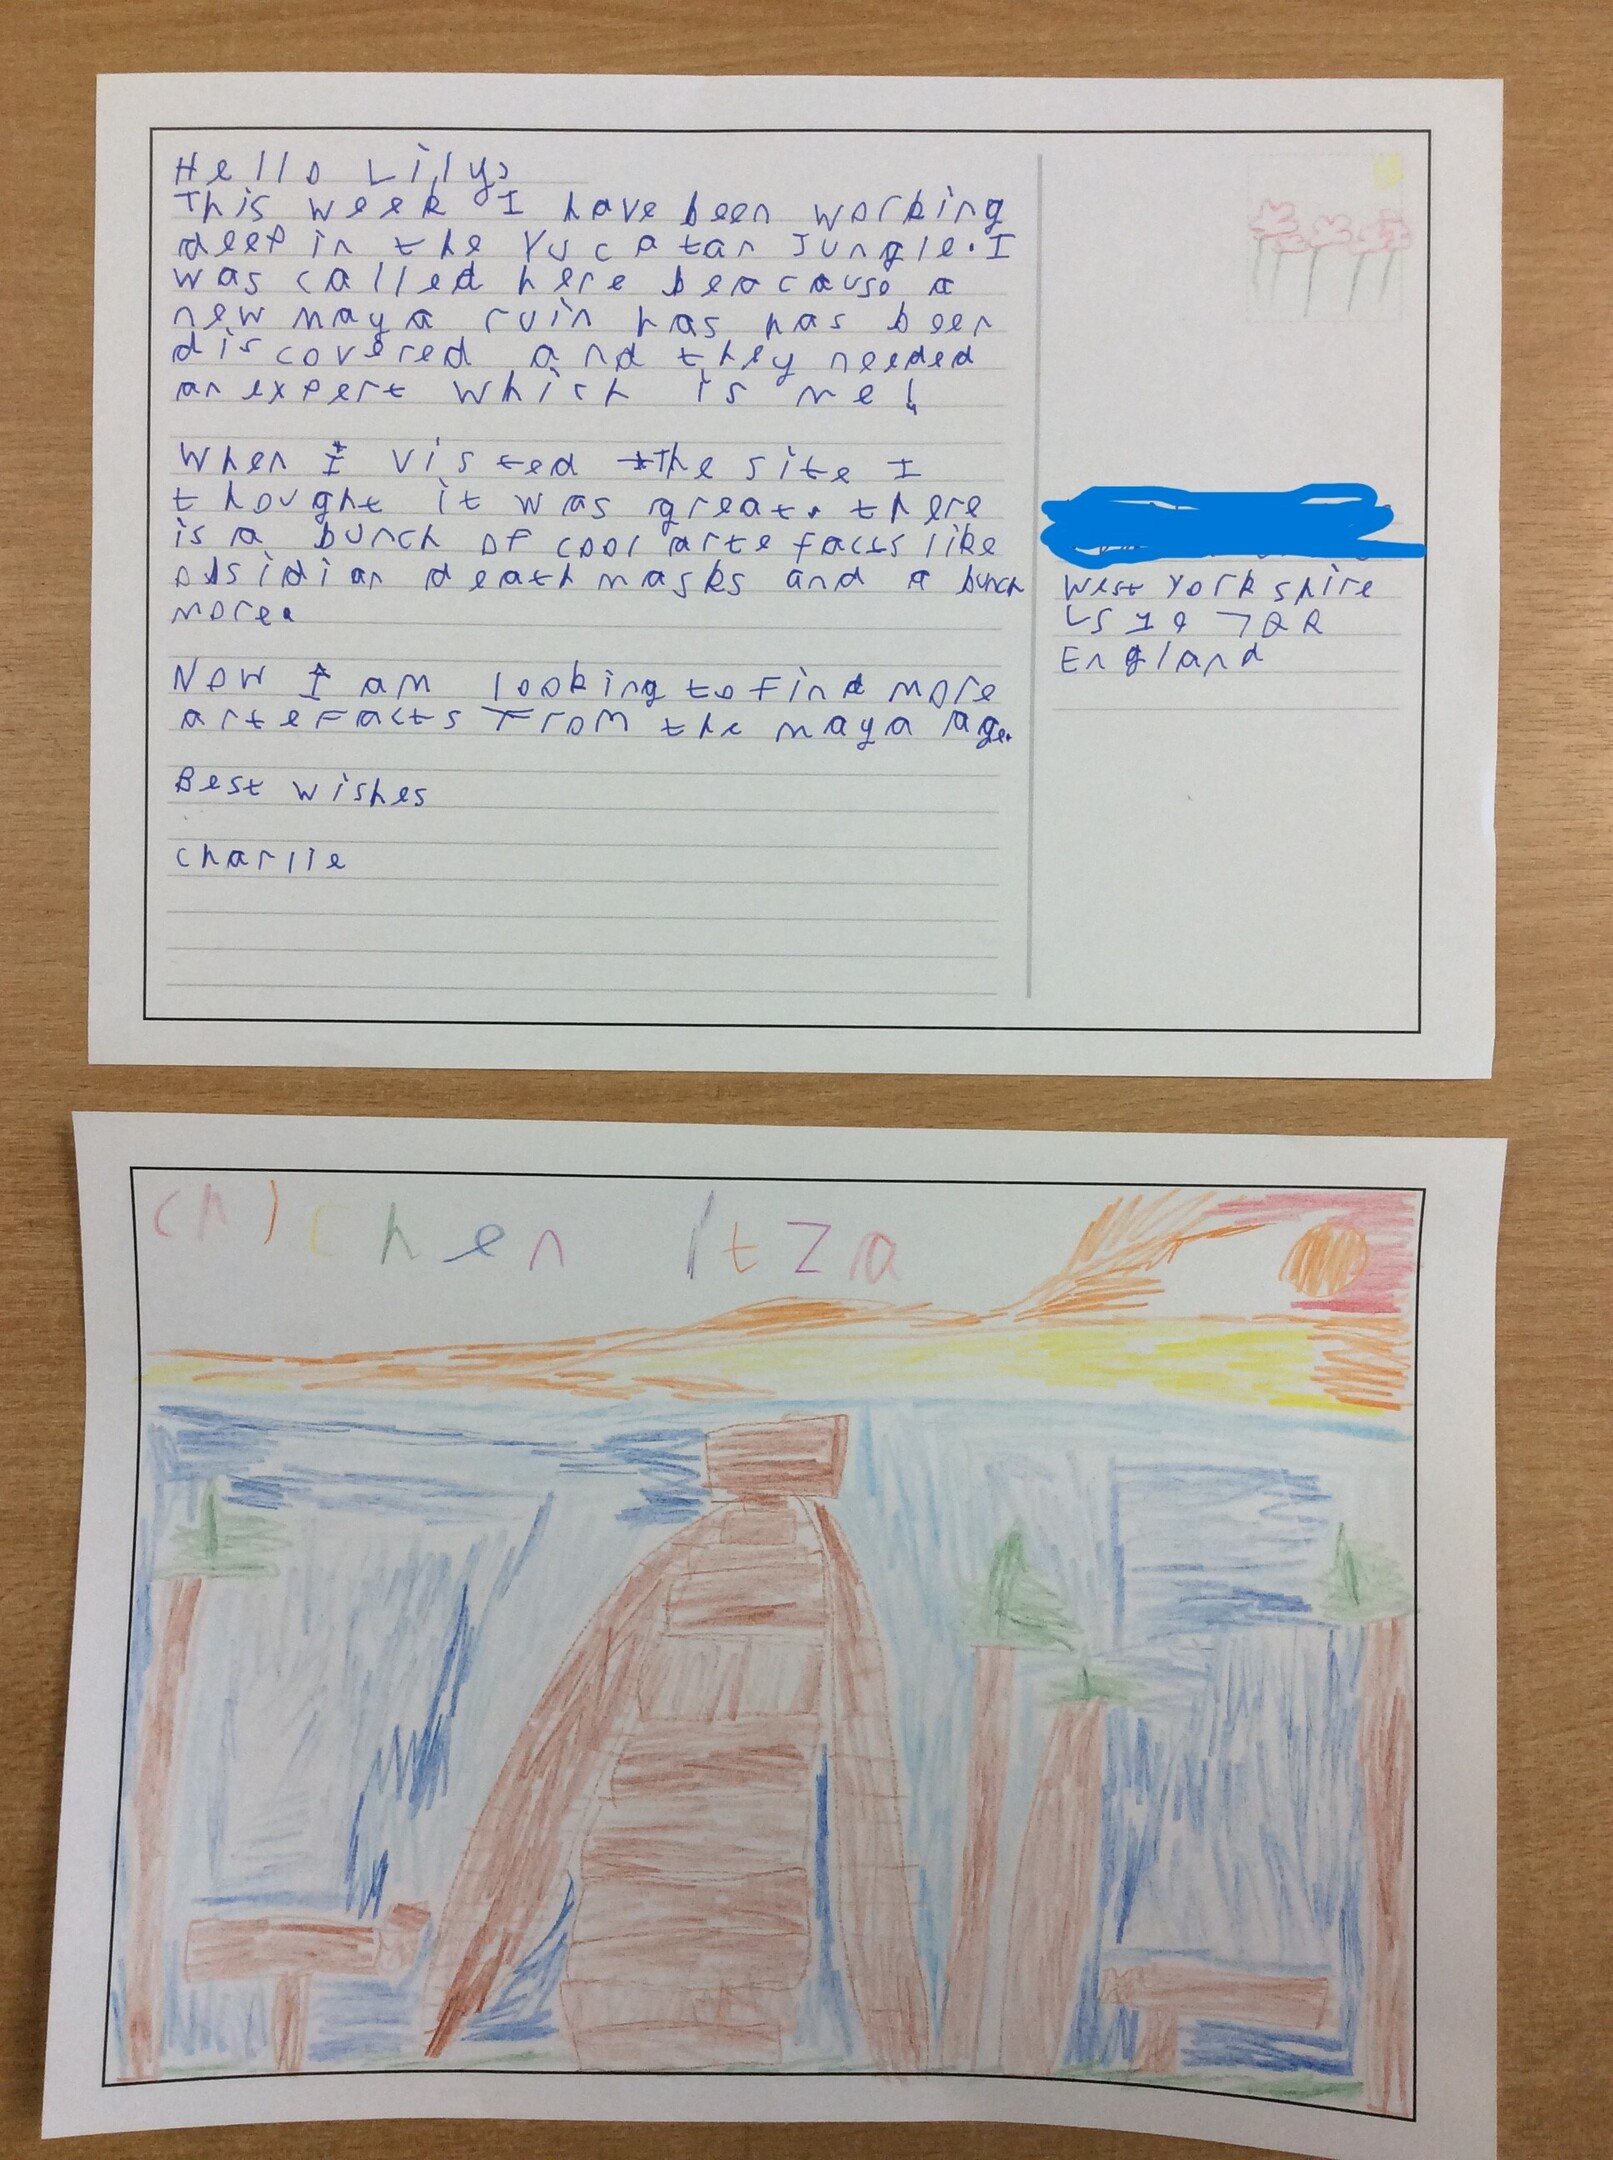 Hello Lily,
This week I have been working
deep in the Yucatan Jungle. I
was called here beacause a
new maya ruin has has been
discovered and they needed
an expert which is me!
When I visted the site I
thought it was great. there
is a bunch of cool artefacts like
obsidian death masks and a bunch
more.
Now I am looking to find more
artefacts from the maya age.
Best wishes
charlie
West Yorkshire
England
chichen itza